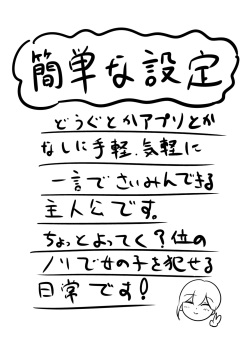 簡単な設定
どうぐとかアプリとか
なしに手軽、気軽に
一言でさいみんできる
主人公です。
ちょっとよってく？位の
ノリで女の子を犯せる
日常です！